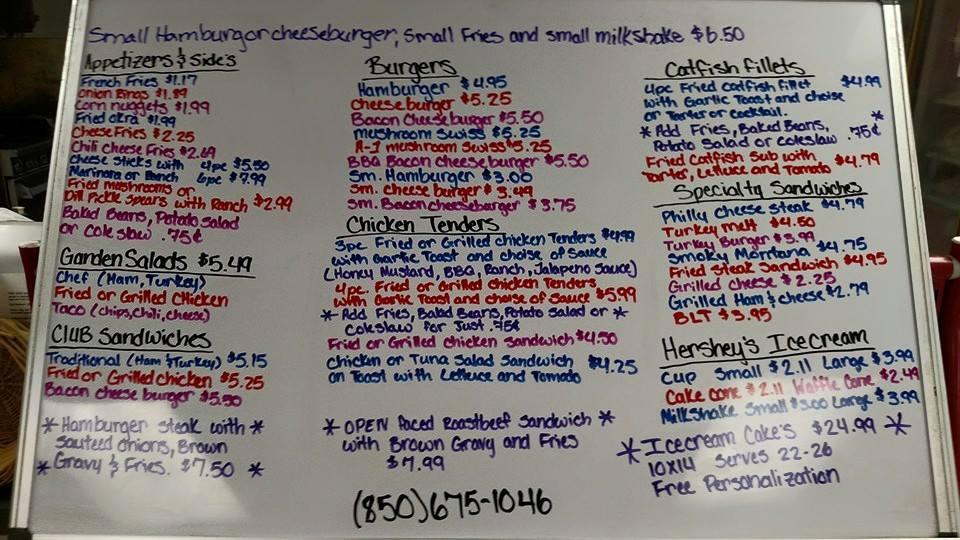 Small Hamburgor cheeseburger, Small Fries and small milkshake $6.50
Appetizers & Side's
French Fries $1.17
Onion Rings $1.89
Corn nuggets $1.99
Fried okra $1.99
Cheese Fries $2.25
Chili cheese Fries $2.69
Cheese sticks with 4pc $5.50
Marinara or Ranch 6pc $7.99
Fried mushrooms or
Dill Pickle Spears with Ranch $2.99
Baked Beans, Potato Salad
or Coleslaw .75¢
Garden Salads $5.49
Chef (Ham, Turkey)
Fried or Grilled Chicken
Taco (chips, chili, cheese)
CLUB Sandwiches
Traditional (Ham & Turkey) $5.15
Fried or Grilled chicken $5.25
Bacon cheese burger $5.50
* Hamburger steak with *
sauteed onions, Brown
* Gravy & Fries. $7.50 *
Burgers
Hamburger $4.95
Cheeseburger $5.25
Bacon Cheeseburger $5.50
Mushroom Swiss $5.25
A-1 mushroom Swiss $5.25
BBQ Bacon cheeseburger $5.50
Sm. Hamburger $3.00
Sm. cheese burger $3.49
Sm. Bacon cheeseburger $3.75
Chicken Tenders
3pc Fried or Grilled chicken Tenders $4.99
with Garlic Toast and choise of Sauce
(Honey Mustard, BBQ, Ranch, Jalapeno Sauce)
4pc. Fried or Grilled chicken Tenders
with Garlic Toast and choise of Sauce $5.99
* Add Fries, Baked Beans, Potato salad or *
Coleslaw for Just .75¢
Fried or Grilled chicken Sandwich $4.50
Chicken or Tuna Salad Sandwich $4.25
on Toast with Lettuce and Tomato
* OPEN faced Roastbeef Sandwich *
with Brown Gravy and Fries
$7.99
(850)675-1046
Catfish Fillets
4pc Fried catfish fillet $4.99
with Garlic Toast and choise
or Tarter or Cocktail.
* Add Fries, Baked Beans, *
Potato Salad or coleslaw .75¢
Fried Catfish Sub with $4.79
Tarter, Lettuce and Tomato
Specialty Sandwiches
Philly cheese steak $4.79
Turkey melt $4.50
Turkey Burger $3.99
Smoky Montana $4.75
Fried steak Sandwich $4.95
Grilled cheese $2.25
Grilled Ham & cheese $2.79
BLT $3.95
Hershey's Icecream
Cup Small $2.11 Large $3.99
Cake cone $2.11 Waffle Cone $2.49
Milkshake Small $3.00 Large $3.99
* Icecream Cake's $24.99 *
10x14 Serves 22-26
Free Personalization